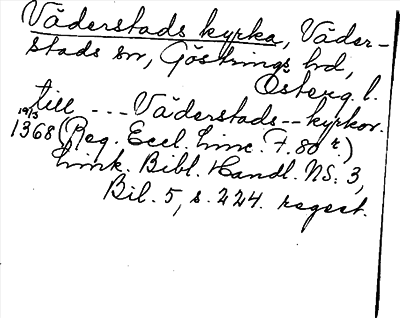 Väderstads kyrka, Väder-
stads sn, Göstrings hd,
Österg. l.
till --- Väderstads -- kyrkor.
19/5
1368 (Reg. Eccl. Linc. F. 80 r.)
Link. Bibl. Handl. NS. 3,
Bil. 5, s. 224. regest.